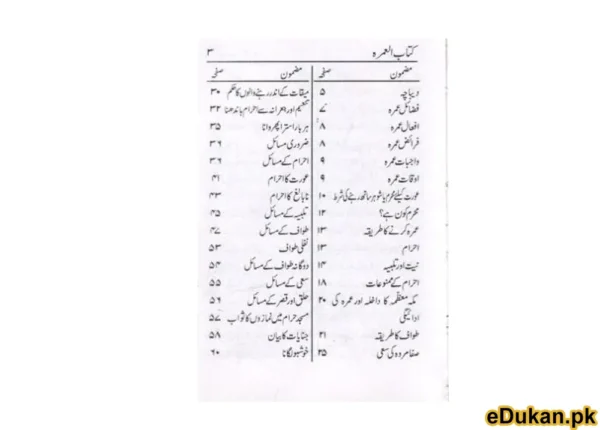 کتاب العمرہ ۳
مضمون صفحہ
دیباچہ ۵
فضائل عمرہ ۷
افعال عمرہ ۸
فرائض عمرہ ۸
واجبات عمرہ ۹
اوقات عمرہ ۹
عورت کیلئے محرم یا شوہر ساتھ رہنے کی شرط ۱۰
محرم کون ہے؟ ۱۲
عمرہ کرنے کا طریقہ ۱۳
احرام ۱۳
نیت اور تلبیہ ۱۴
احرام کے ممنوعات ۱۸
مکہ معظمہ کا داخلہ اور عمرہ کی ۲۰
ادائیگی
طواف کا طریقہ ۲۱
صفا مروہ کی سعی ۲۵
مضمون صفحہ
میقات کے اندر رہنے والوں کا حکم ۳۰
تنعیم اور جعرانہ سے احرام باندھنا ۳۲
ہر بار استرا پھروانا ۳۵
ضروری مسائل ۳۶
احرام کے مسائل ۳۶
عورت کا احرام ۴۱
نابالغ کا احرام ۴۳
تلبیہ کے مسائل ۴۵
طواف کے مسائل ۴۷
نفلی طواف ۵۳
دوگانہ طواف کے مسائل ۵۴
سعی کے مسائل ۵۵
حلق اور قصر کے مسائل ۵۶
مسجد حرام میں نمازوں کا ثواب ۵۷
جنایات کا بیان ۵۸
خوشبو لگانا ۶۰
eDukan.pk